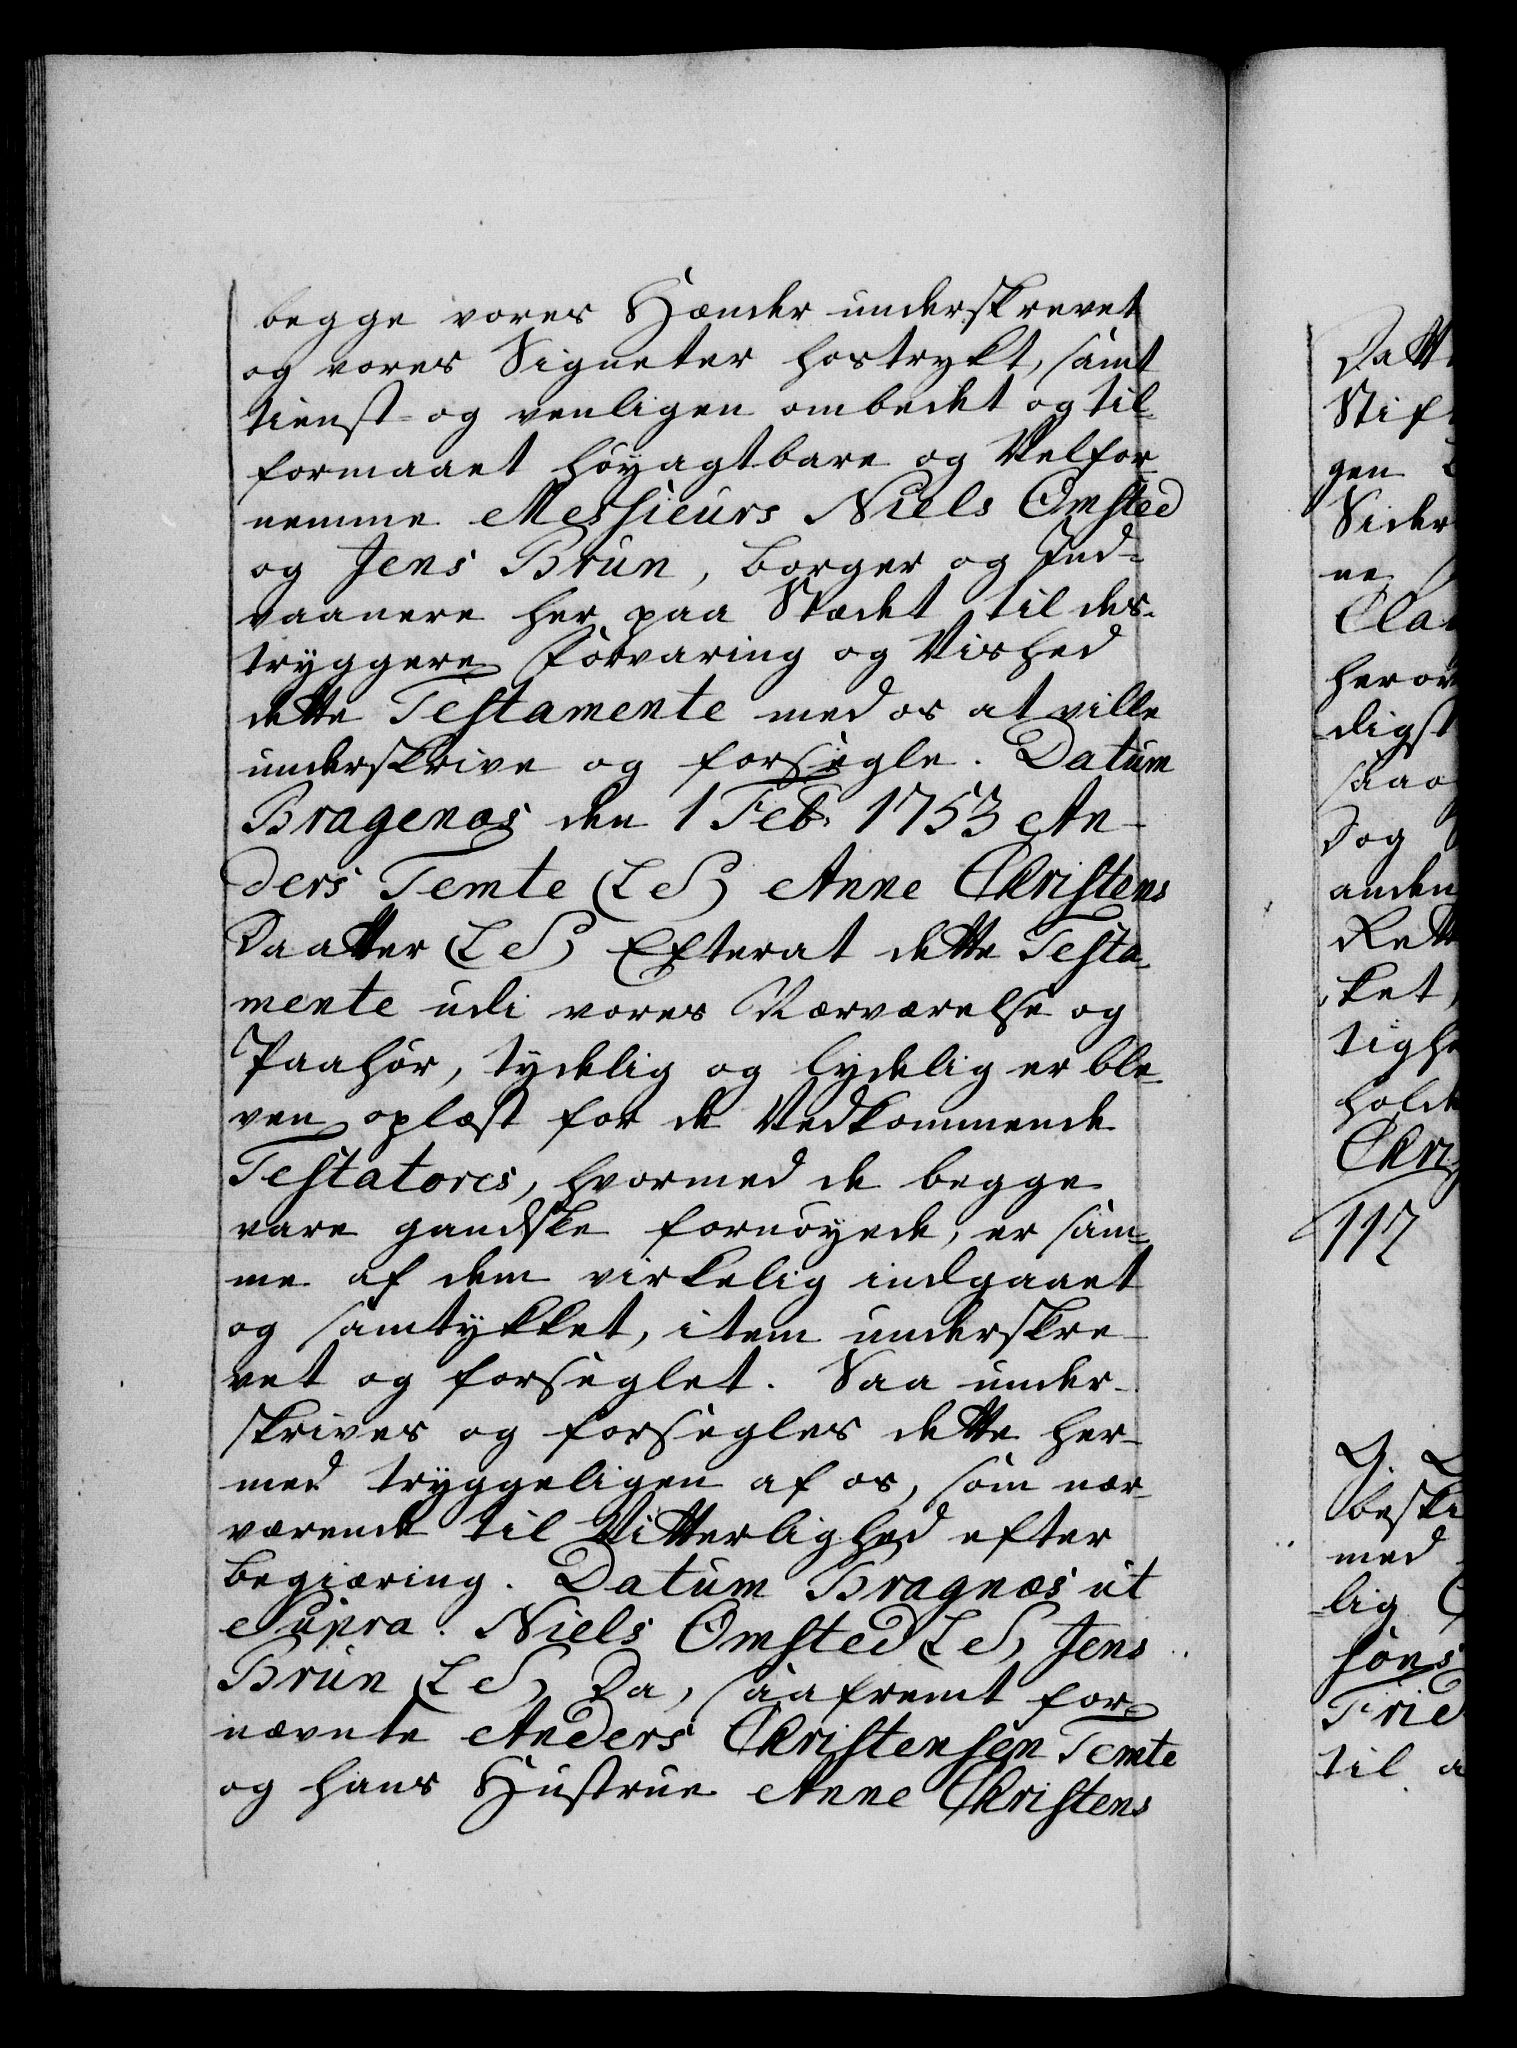 begge vores Hænder underskrevet
og vores Signeter hostrykt, samt
tienst- og venligen ombedet og til-
formaaet høyagtbare og Velfor-
nemme Messieurs Niels Omsted
og Jens Brun, borger og Ind-
vaanere her paa Stædet, til des-
tryggere Forvaring og Vished
dette Testamente med os at ville
underskrive og forsegle. Datum
Bragenæs den 1 Feb. 1753 An-
ders Temte (LS) Anne Christens
Daatter (LS) Efterat dette Testa-
mente udi vores Nærværelse og
Paahør, tydelig og lydelig er ble-
ven oplæst for de Vedkommende
Testatores, hvormed de begge
vare gandske fornøyede, er sam-
me af dem virkelig indgaaet
og samtykket, item underskre-
vet og forseglet. Saa under-
skrives og forsegles dette her-
med tryggeligen af os, som nær-
værende til Vitterlighed efter
begiæring. Datum Bragnæs ut
Supra. Niels Omsted (LS) Jens
Brun (LS) Da, saafremt for-
nævnte Anders Christensen Temte
og hans Hustrue Anne Christens
Datt
Stif
gen
Sider
ne
Cla
heror
digst
saao
Dog
anden
Rett
ket,
tighe
holde
Chri
117
beski
med
lig
søns
Frid
til a